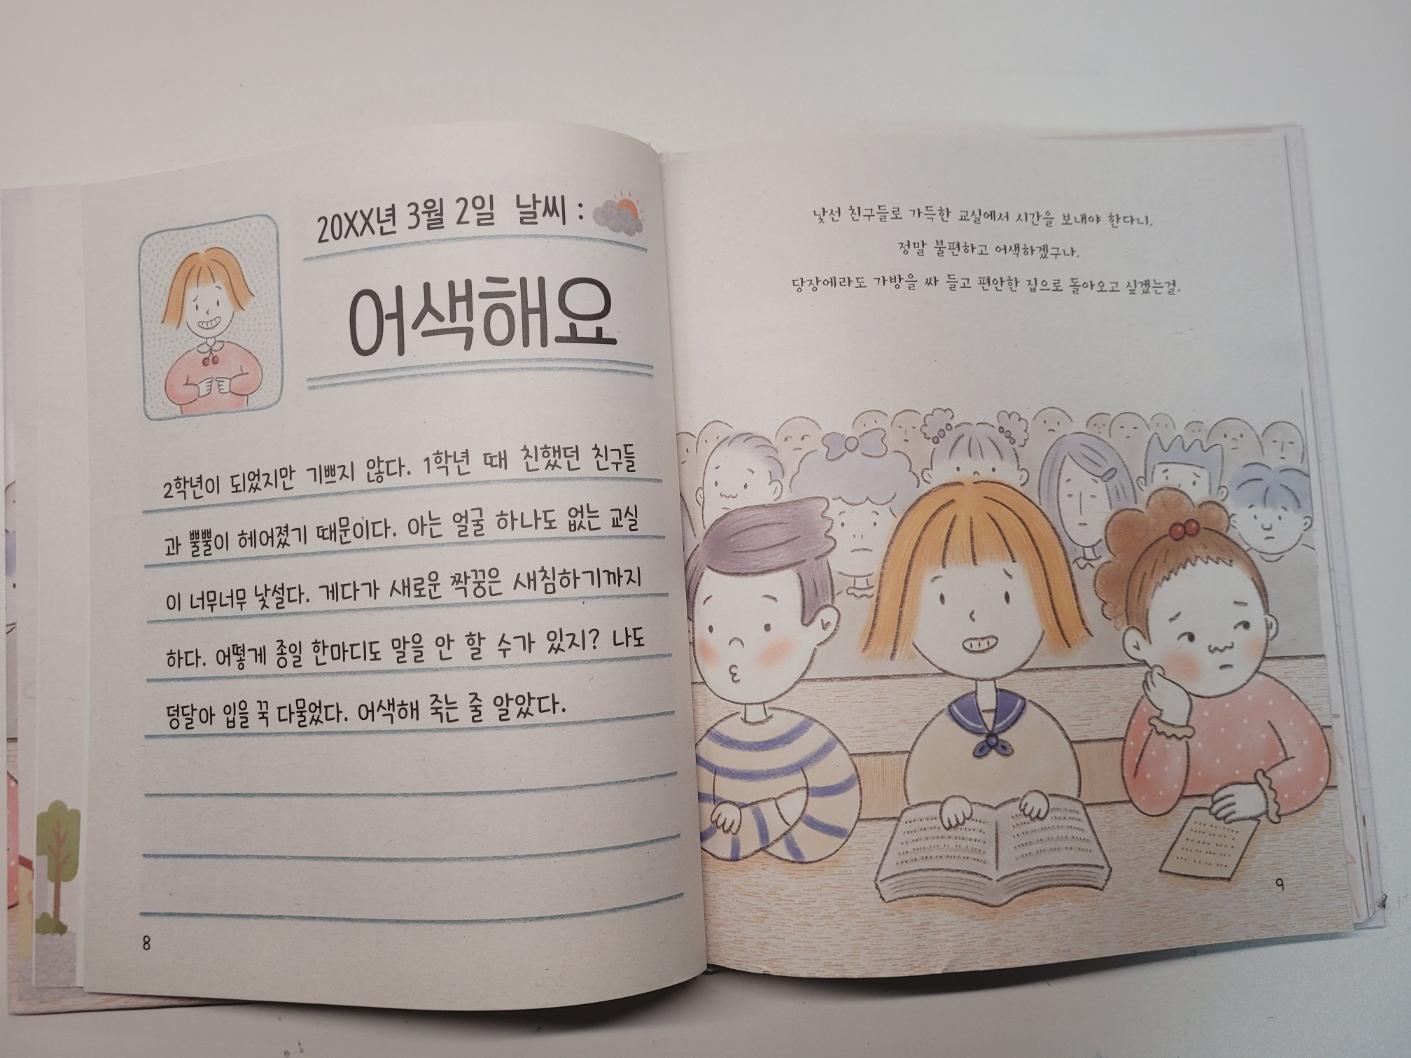 20XX년 3월 2일 날씨 :
어색해요
2학년이 되었지만 기쁘지 않다. 1학년 때 친했던 친구들
과 뿔뿔이 헤어졌기 때문이다. 아는 얼굴 하나도 없는 교실
이 너무너무 낯설다. 게다가 새로운 짝꿍은 새침하기까지
하다. 어떻게 종일 한마디도 말을 안 할 수가 있지? 나도
덩달아 입을 꾹 다물었다. 어색해 죽는 줄 알았다.
8
낯선 친구들로 가득한 교실에서 시간을 보내야 한다니,
정말 불편하고 어색하겠구나.
당장에라도 가방을 싸 들고 편안한 집으로 돌아오고 싶겠는걸.
9